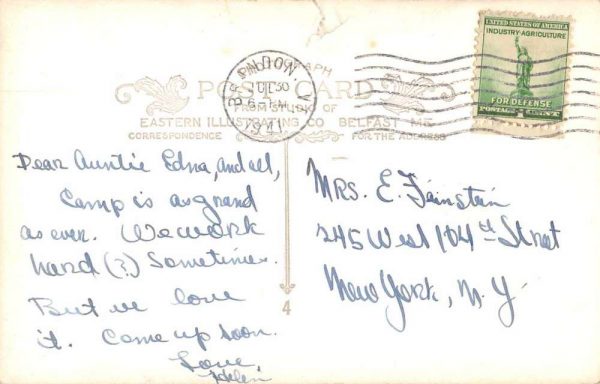 UNITED STATES OF AMERICA
INDUSTRY·AGRICULTURE
FOR DEFENSE
POSTAGE 1 CENT
BRANDON, V
JUL 30
6
1941
POST CARD
FROM STUDIO OF
EASTERN ILLUSTRATING CO BELFAST ME
CORRESPONDENCE
FOR THE ADDRESS
Dear Auntie Edna, and all,
Camp is as grand
as ever. We work
hard (?) sometimes.
But we love
it. Come up soon.
Love,
Helen
4
Mrs. E. Feinstein
245 West 104th Street
New York, N.Y.